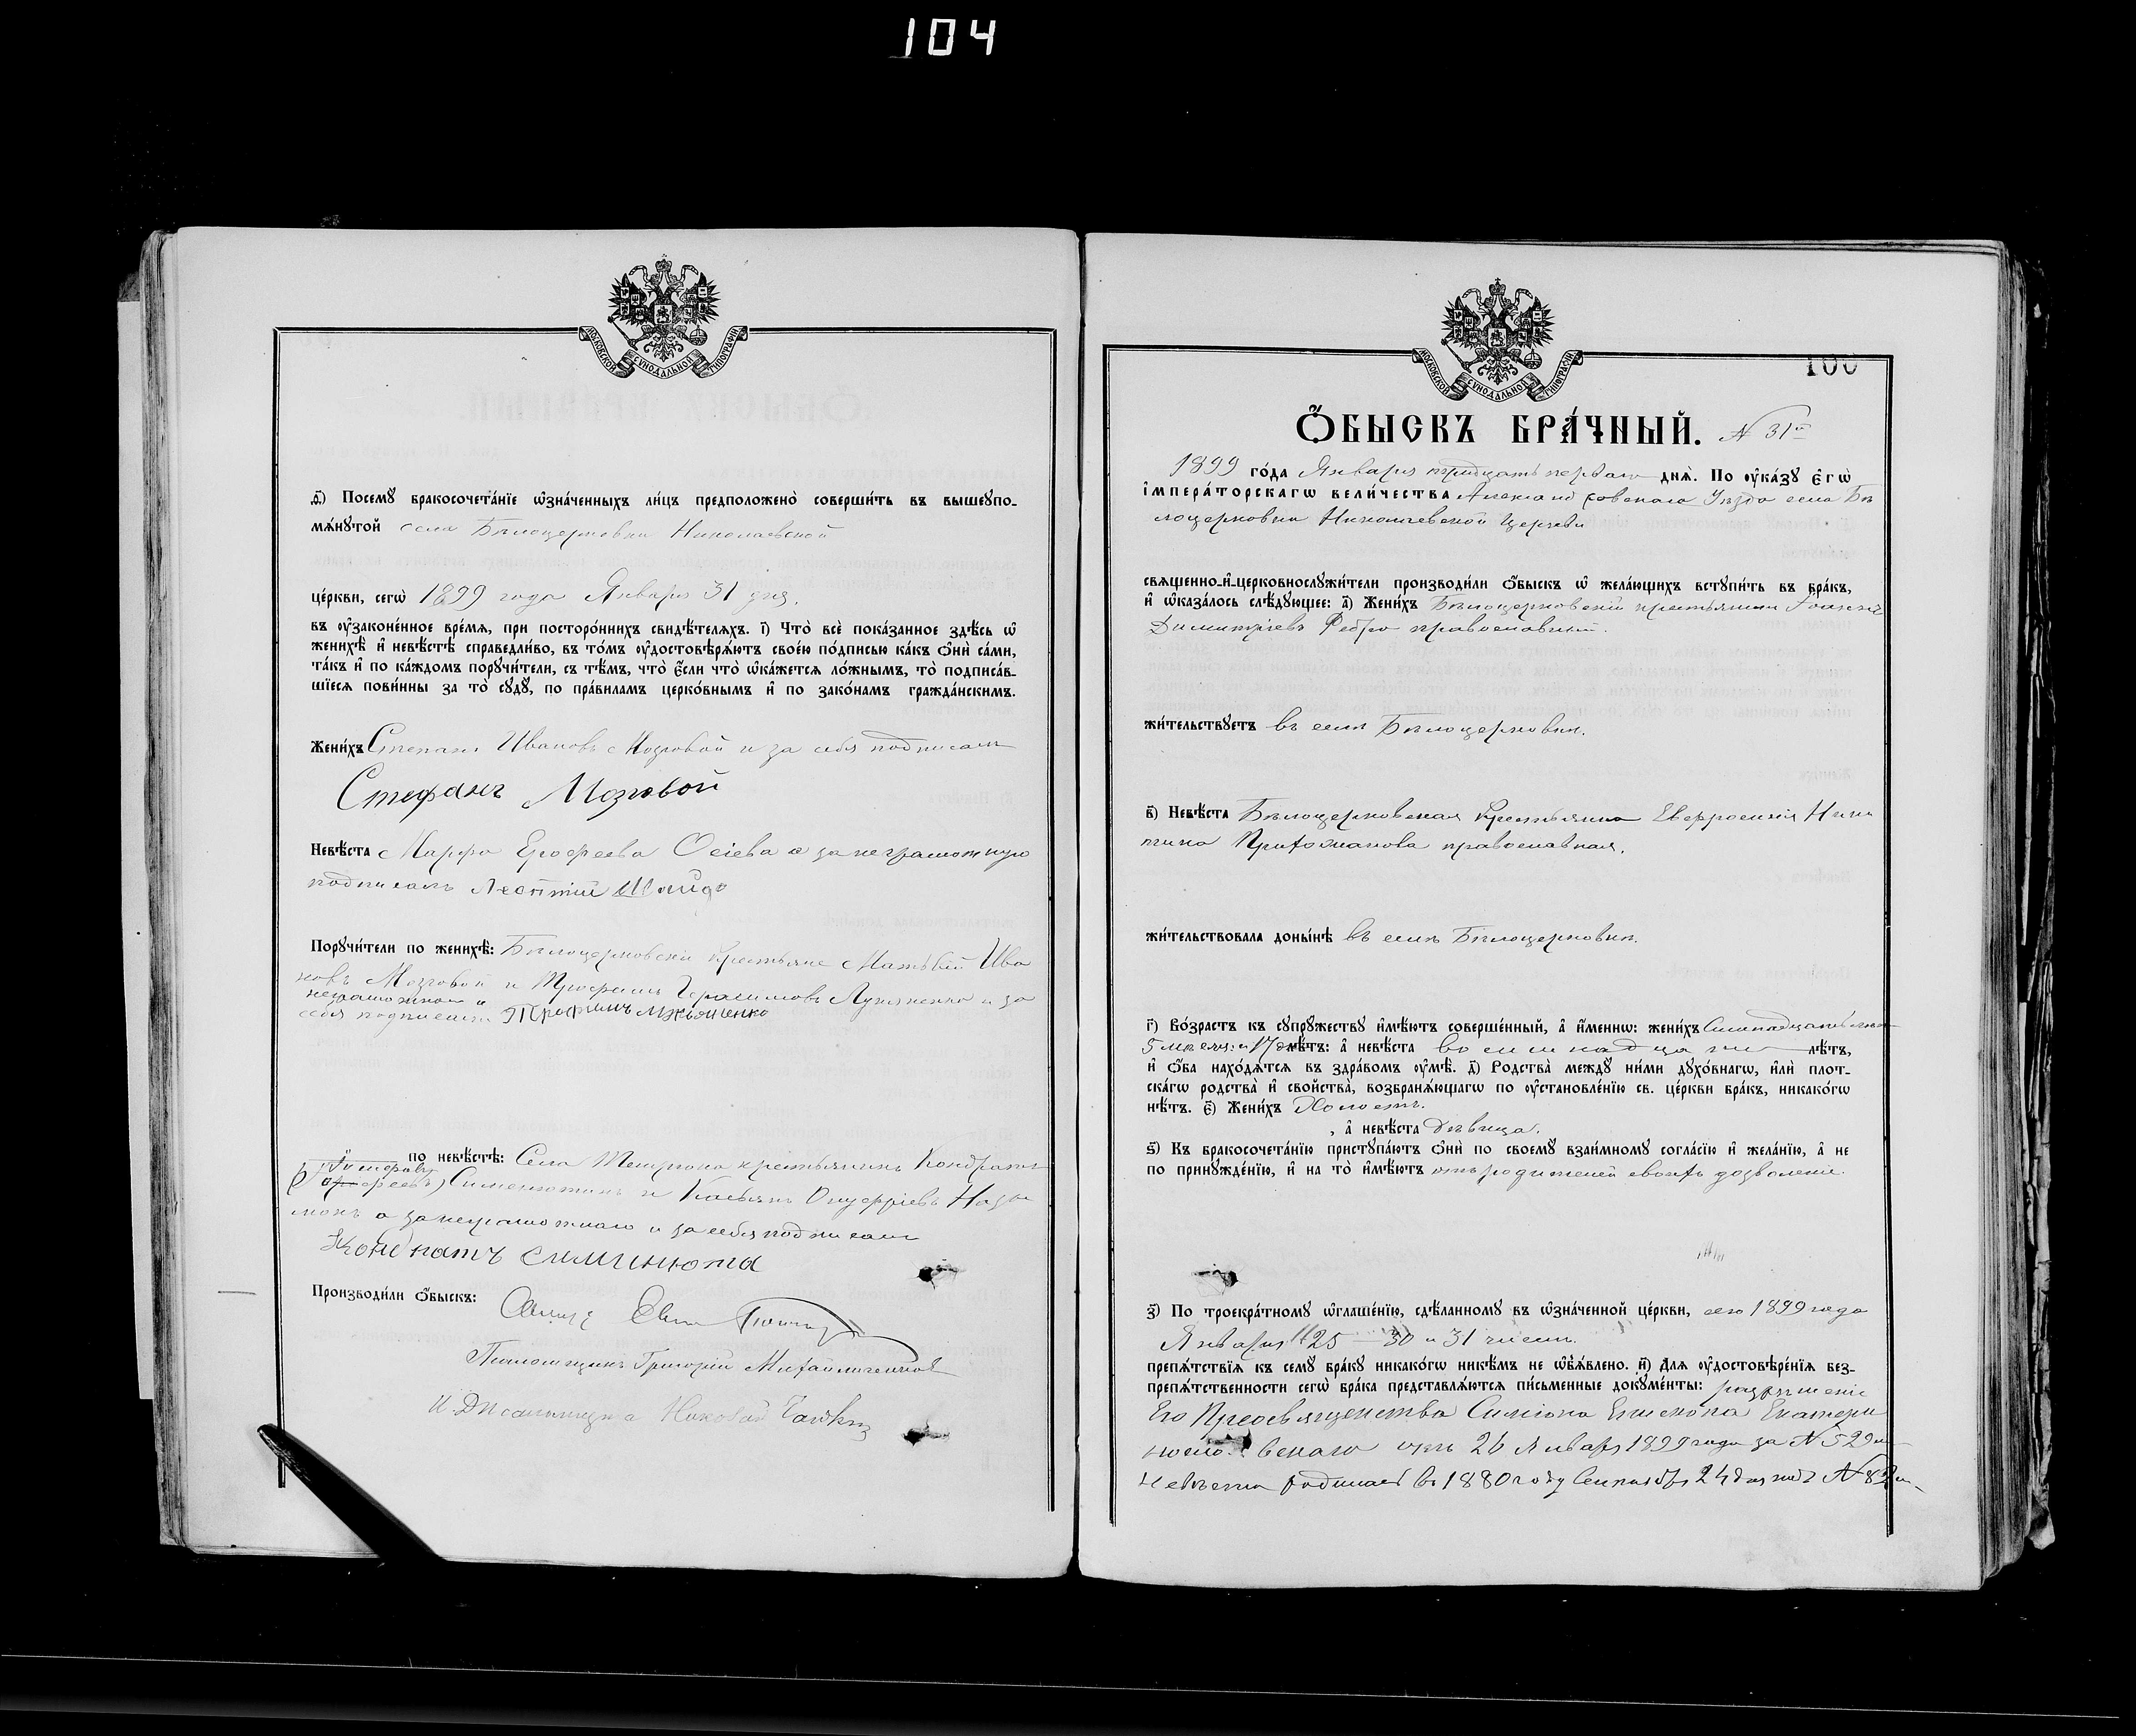 104
МОСКОВСКОЙ СѴНОДАЛЬНОЙ ТИПОГРАФІИ
д҃) Посемꙋ бракосочета́нїе ѡ҆зна́ченныхъ ли́цъ предположено̀ соверши́ть въ вышеупо-
мѧ́нꙋтой села Бѣлоцерковки Николаевской
це́ркви, сегѡ̀ 1899 года Января 31 дня.
въ ᲂу҆зако́ненное вре́мѧ, при посторо́ннихъ свидѣ́телѧхъ. і҃) Что̀ всѐ пока́занное здѣ́сь ѡ҆
женихѣ̀ и҆ невѣ́стѣ справедли́во, въ то́мъ ᲂу҆достовѣрѧ́ютъ свое́ю по́дписью ка́къ ѻ҆нѝ са́ми,
та́къ и҆ по ка́ждомъ порꙋчи́тели, съ тѣ́мъ, что̀ є҆́сли что̀ ѡ҆ка́жетсѧ ло́жнымъ, то̀ подписа́в-
шїесѧ пови́нны за то̀ сꙋдꙋ̀, по пра́виламъ церко́внымъ и҆ по зако́намъ гражда́нскимъ.
Жени́хъ Степанъ Ивановъ Мозговой и за себя подписалъ
Стефанъ Мозговой
Невѣ́ста Марфа Ерофеева Осіева а за неграмотную
подписалъ Леонтій Шайда
Порꙋчи́тели по женихѣ̀: Бѣлоцерковскіи крестьяне Матвѣй Ива
новъ Мозговой и Трофимъ Герасимовъ Лукяненко и за
неграмотнаго и
себя подписалъ Трофимъ
по невѣ́стѣ: Села крестьянинъ Кондратъ
и Касьянъ Онуфріевъ
а за неграмотнаго и за себя подписалъ
Кондратъ Симинюта
Производи́ли ѻ҆́быскъ:
Псаломщикъ Григорій
И. Д. Псаломщика Николай
МОСКОВСКОЙ СѴНОДАЛЬНОЙ ТИПОГРАФІИ
100
Ѻ҆́БЫСКЪ БРА́ЧНЫЙ. № 31й
1899 го́да Января тридцать перваго днѧ̀. По ᲂу҆ка́зꙋ є҆гѡ̀
і҆мпера́торскагѡ вели́чества Александровскаго Уѣзда села Бѣ
лоцерковки Николаевской Церкви
свѧщенно-и҆-церковнослꙋжи́тели производи́ли ѻ҆́быскъ ѡ҆ жела́ющихъ встꙋпи́ть въ бра́къ,
и҆ ѡ҆каза́лось слѣ́дꙋющее: а҃) Жени́хъ Бѣлоцерковскій крестьянинъ Іоаннъ
Димитріевъ Ребро православный.
жи́тельствꙋетъ въ селѣ Бѣлоцерковки.
в҃) Невѣ́ста Бѣлоцерковская Крестьянка Евфросинія Ники
тина православная.
жи́тельствовала доны́нѣ въ селѣ Бѣлоцерковки.
г҃) Во́зрастъ къ сꙋпрꙋ́жествꙋ и҆мѣ́ютъ соверше́нный, а҆ и҆́меннѡ: жени́хъ Семнадцать лѣтъ
5 мѣсяц: и 17 д лѣ́тъ: а҆ невѣ́ста восемнадцати лѣ́тъ,
и҆ ѻ҆́ба нахо́дѧтсѧ въ здра́вомъ ᲂу҆мѣ̀. д҃) Родства̀ междꙋ̀ ни́ми дꙋхо́внагѡ, и҆лѝ плот-
ска́гѡ родства̀ и҆ сво́йства̀, возбранѧ́ющагѡ по ᲂу҆становле́нїю св. це́ркви бра́къ, никако́гѡ
нѣ́тъ. є҃) Жени́хъ Холостъ.
, а҆ невѣ́ста дѣвица.
ѕ҃) Къ бракосочета́нїю пристꙋпа́ютъ ѻ҆нѝ по своемꙋ̀ взаи́мномꙋ согла́сїю и҆ жела́нїю, а҆ не
по принꙋжде́нїю, и҆ на то̀ и҆мѣ́ютъ отъ родителей своихъ дозволеніе.
з҃) По троекра́тномꙋ ѡ҆глаше́нїю, сдѣ́ланномꙋ въ ѡ҆зна́ченной це́ркви, сего 1899 года
Января 25 — 30 и 31 чиселъ.
препѧ́тствїѧ къ семꙋ̀ бра́кꙋ никако́гѡ никѣ́мъ не ѡ҆б̾ѧ́влено. и҃) Длѧ ᲂу҆достовѣре́нїѧ без-
препѧ́тственности сегѡ̀ бра́ка представлѧ́ютсѧ пи́сьменные докꙋме́нты: разрѣшеніе
Его Преосвященства Симеона Епископа Екатери
носл. вскаго отъ 26 Января 1899 года за № 529 м
невѣста родилась въ 1880 году Сентября 24 дня подъ № 82 м.